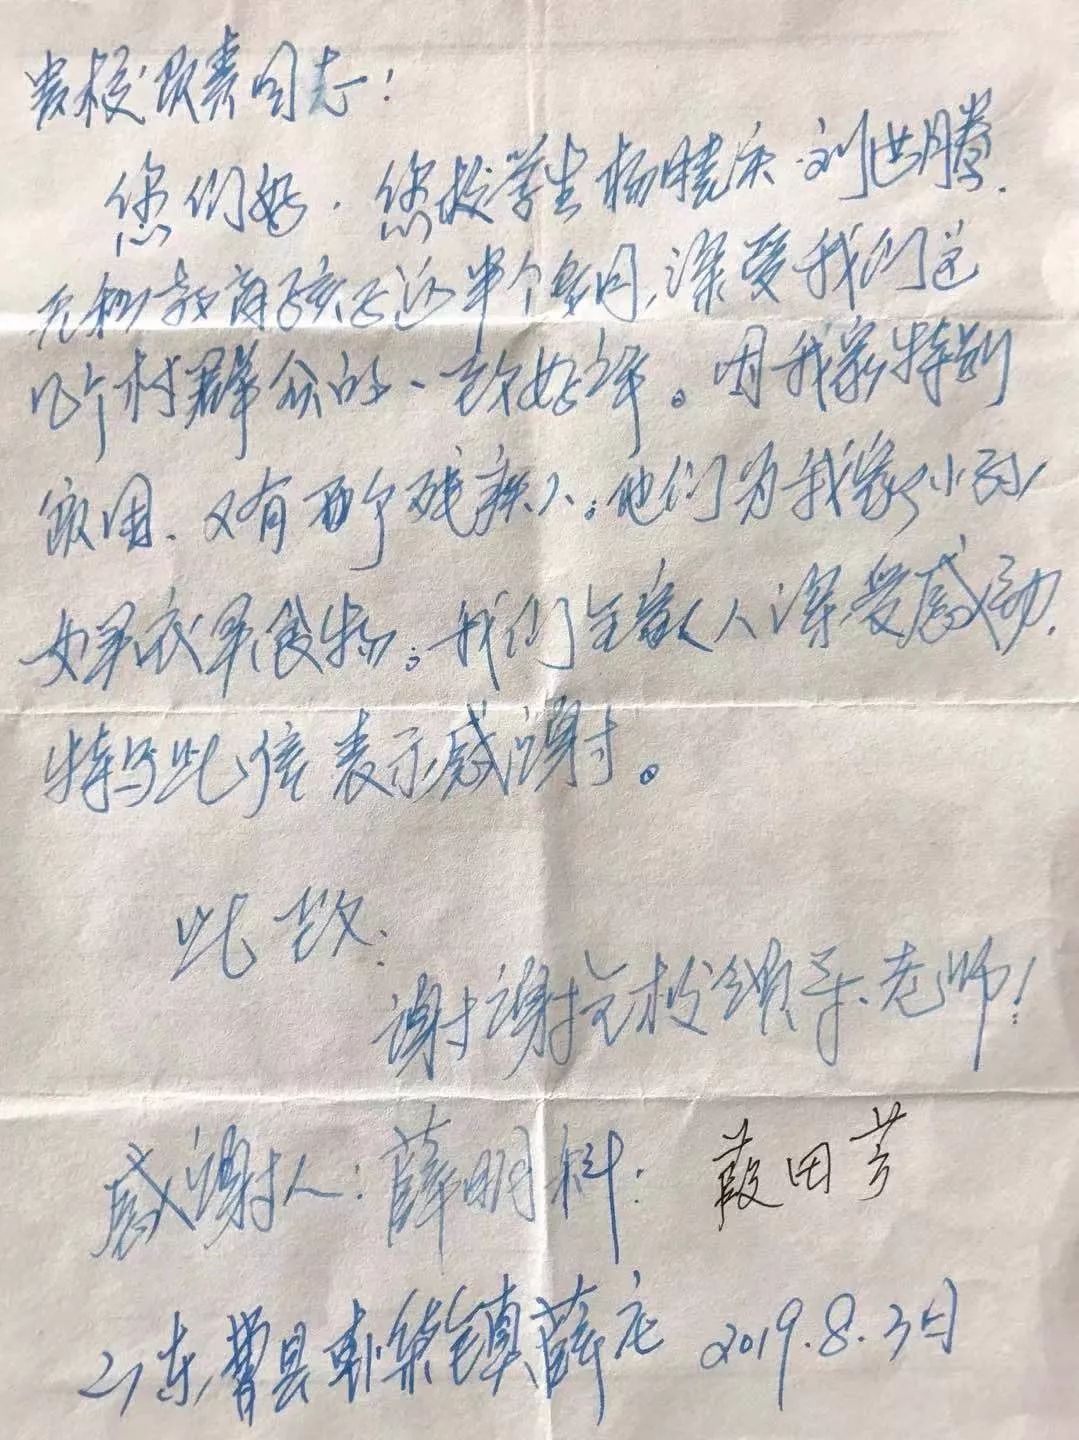 贵校负责同志！
您们好．您校学生杨晓庆．刘世腾．
在我村教育孩子这半个多月，深受我们这
几个村群众的一致好评。因我家特别
困．又有两个残疾人。他们为我家小孙
如买衣买食物。我们全家人深受感动．
特写此信表示感谢。
此致．
谢谢校领导、老师！
感谢人：薛明科： 葭田芳
山东曹县韩集镇薛庄 2019.8.3日